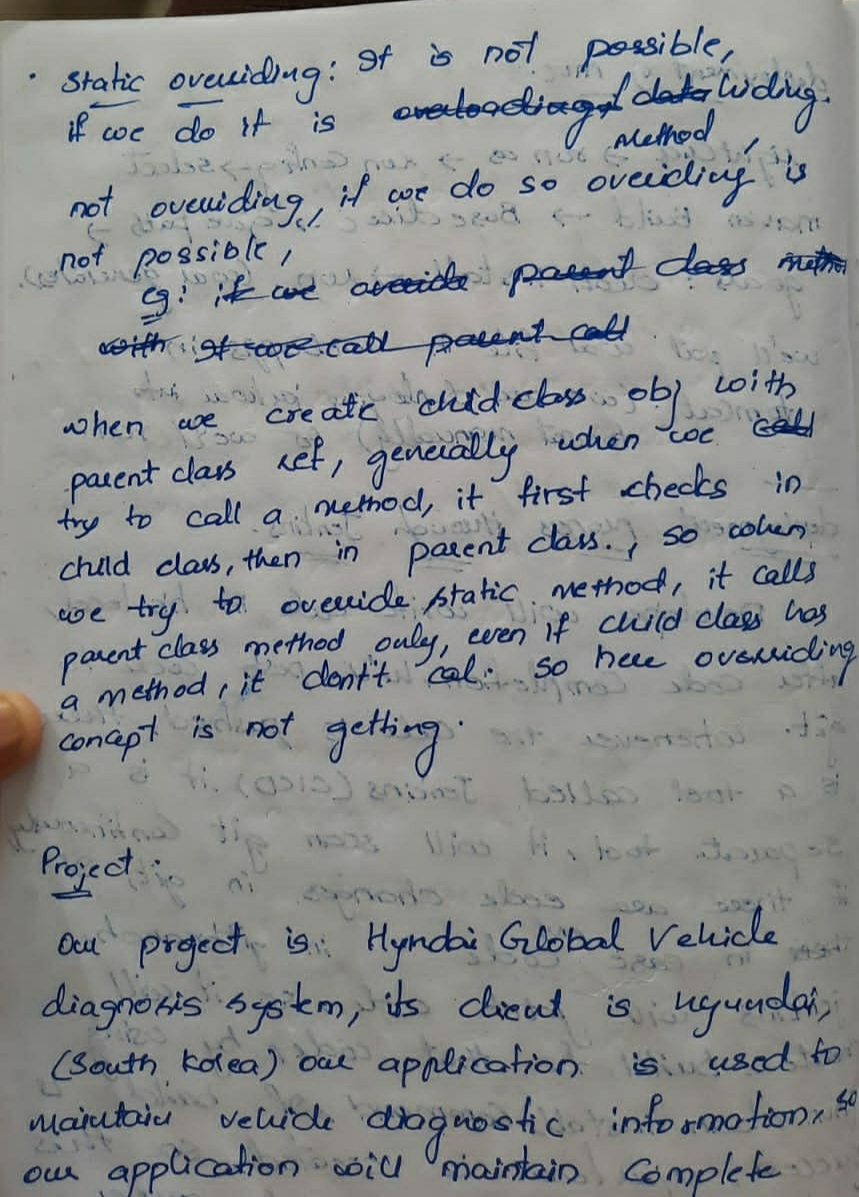 • Static overriding: It is not possible,
if we do it is overloading/ data hiding.
Method,
not overriding, if we do so overiding is
not possible,
eg: if we override parent class method
with it we call parent call
when we create child class obj with
parent class ref, generally when we call
try to call a method, it first checks in
child class, then in parent class., so when
we try to override static method, it calls
parent class method only, even if child class has
a method, it dont't cal. so here overriding
concept is not getting.
Project:
Our project is: Hyndai Global Vehicle
diagnosis system, its client is Hyundai,
(South Korea) our application is used to
maintain vehicle diagnostic information, so
our application will maintain complete